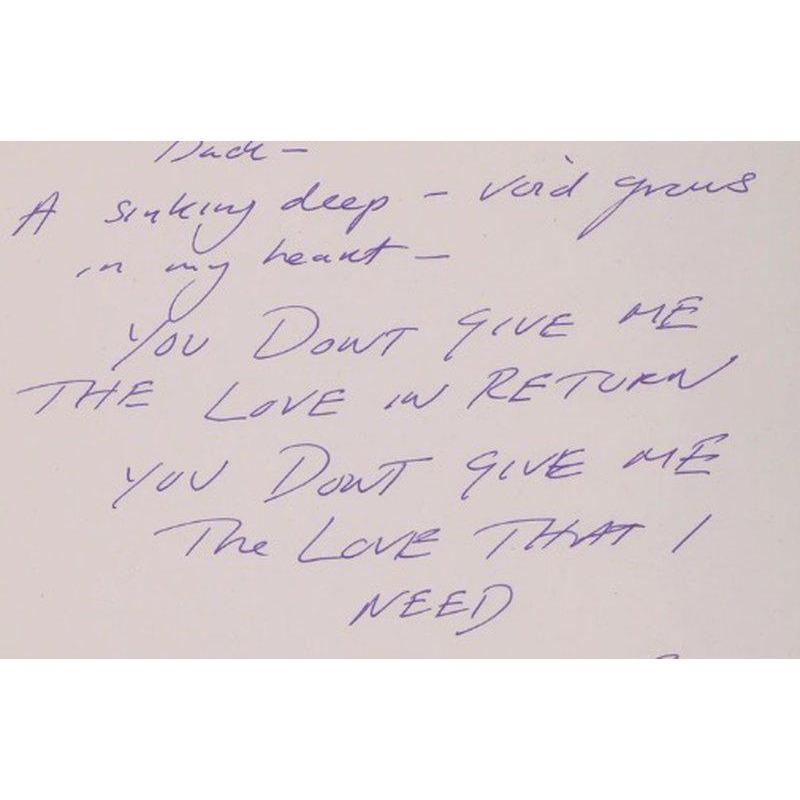 A sinking deep - void grows
in my heart -
YOU DONT GIVE ME
THE LOVE IN RETURN
YOU DONT GIVE ME
The LOVE THAT I
NEED